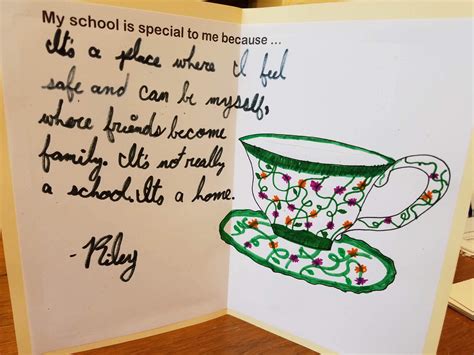 My school is special to me because ...
It's a place where I feel
safe and can be myself,
where friends become
family. It's not really
a school. Its a home.
- Riley